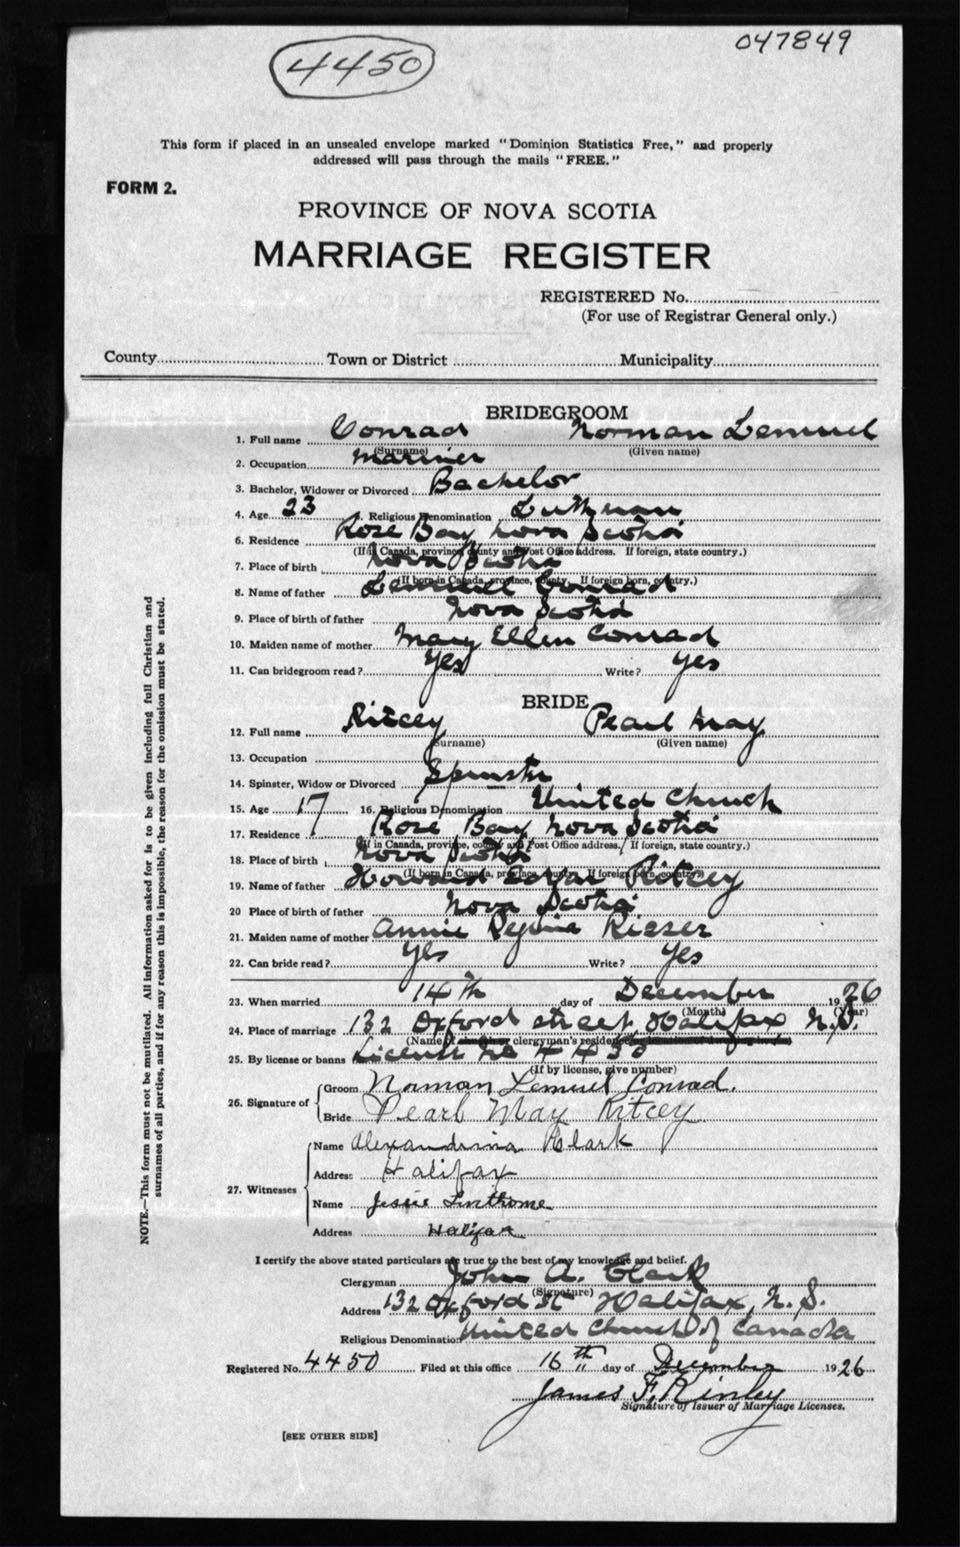 4450
047849
This form if placed in an unsealed envelope marked "Dominion Statistics Free," and properly
addressed will pass through the mails "FREE."
FORM 2.
PROVINCE OF NOVA SCOTIA
MARRIAGE REGISTER
REGISTERED No.
(For use of Registrar General only.)
County Town or District Municipality
BRIDEGROOM
1. Full name Conrad Norman Lemuel
(Surname) (Given name)
2. Occupation mariner
3. Bachelor, Widower or Divorced Bachelor
4. Age 23 Religious Denomination Lutheran
6. Residence Rose Bay Nova Scotia
(If in Canada, province, county and Post Office address. If foreign, state country.)
7. Place of birth Nova Scotia
(If born in Canada, province, county. If foreign born, country.)
8. Name of father Lemuel Conrad
9. Place of birth of father Nova Scotia
10. Maiden name of mother Mary Ellen Conrad
11. Can bridegroom read? Yes Write? Yes
BRIDE
12. Full name Ritcey Pearl May
(Surname) (Given name)
13. Occupation
14. Spinster, Widow or Divorced Spinster
15. Age 17 16. Religious Denomination United Church
17. Residence Rose Bay Nova Scotia
(If in Canada, province, county and Post Office address. If foreign, state country.)
18. Place of birth Nova Scotia
(If born in Canada, province, county. If foreign born, country.)
19. Name of father Howard Ritcey
20 Place of birth of father Nova Scotia
21. Maiden name of mother Annie Regina
22. Can bride read? Yes Write? Yes
23. When married 14th day of December 1926
(Month) (Year)
24. Place of marriage 132 Oxford street, Halifax, N.S.
(Name of church or clergyman's residence
25. By license or banns License No 4450
(If by license, give number)
26. Signature of Groom Norman Lemuel Conrad.
Bride Pearl May Ritcey
27. Witnesses
Name Alexandrina Clark
Address Halifax
Name Jessie
Address Halifax
I certify the above stated particulars are true to the best of my knowledge and belief.
Clergyman John A. Clark
(Signature)
Address 132 Oxford St Halifax, N.S.
Religious Denomination United Church of Canada
Registered No. 4450 Filed at this office 16th day of December 1926
James F. Kinley
Signature of Issuer of Marriage Licenses.
[SEE OTHER SIDE]
NOTE.—This form must not be mutilated. All information asked for is to be given including full Christian and
surnames of all parties, and if for any reason this is impossible, the reason for the omission must be stated.